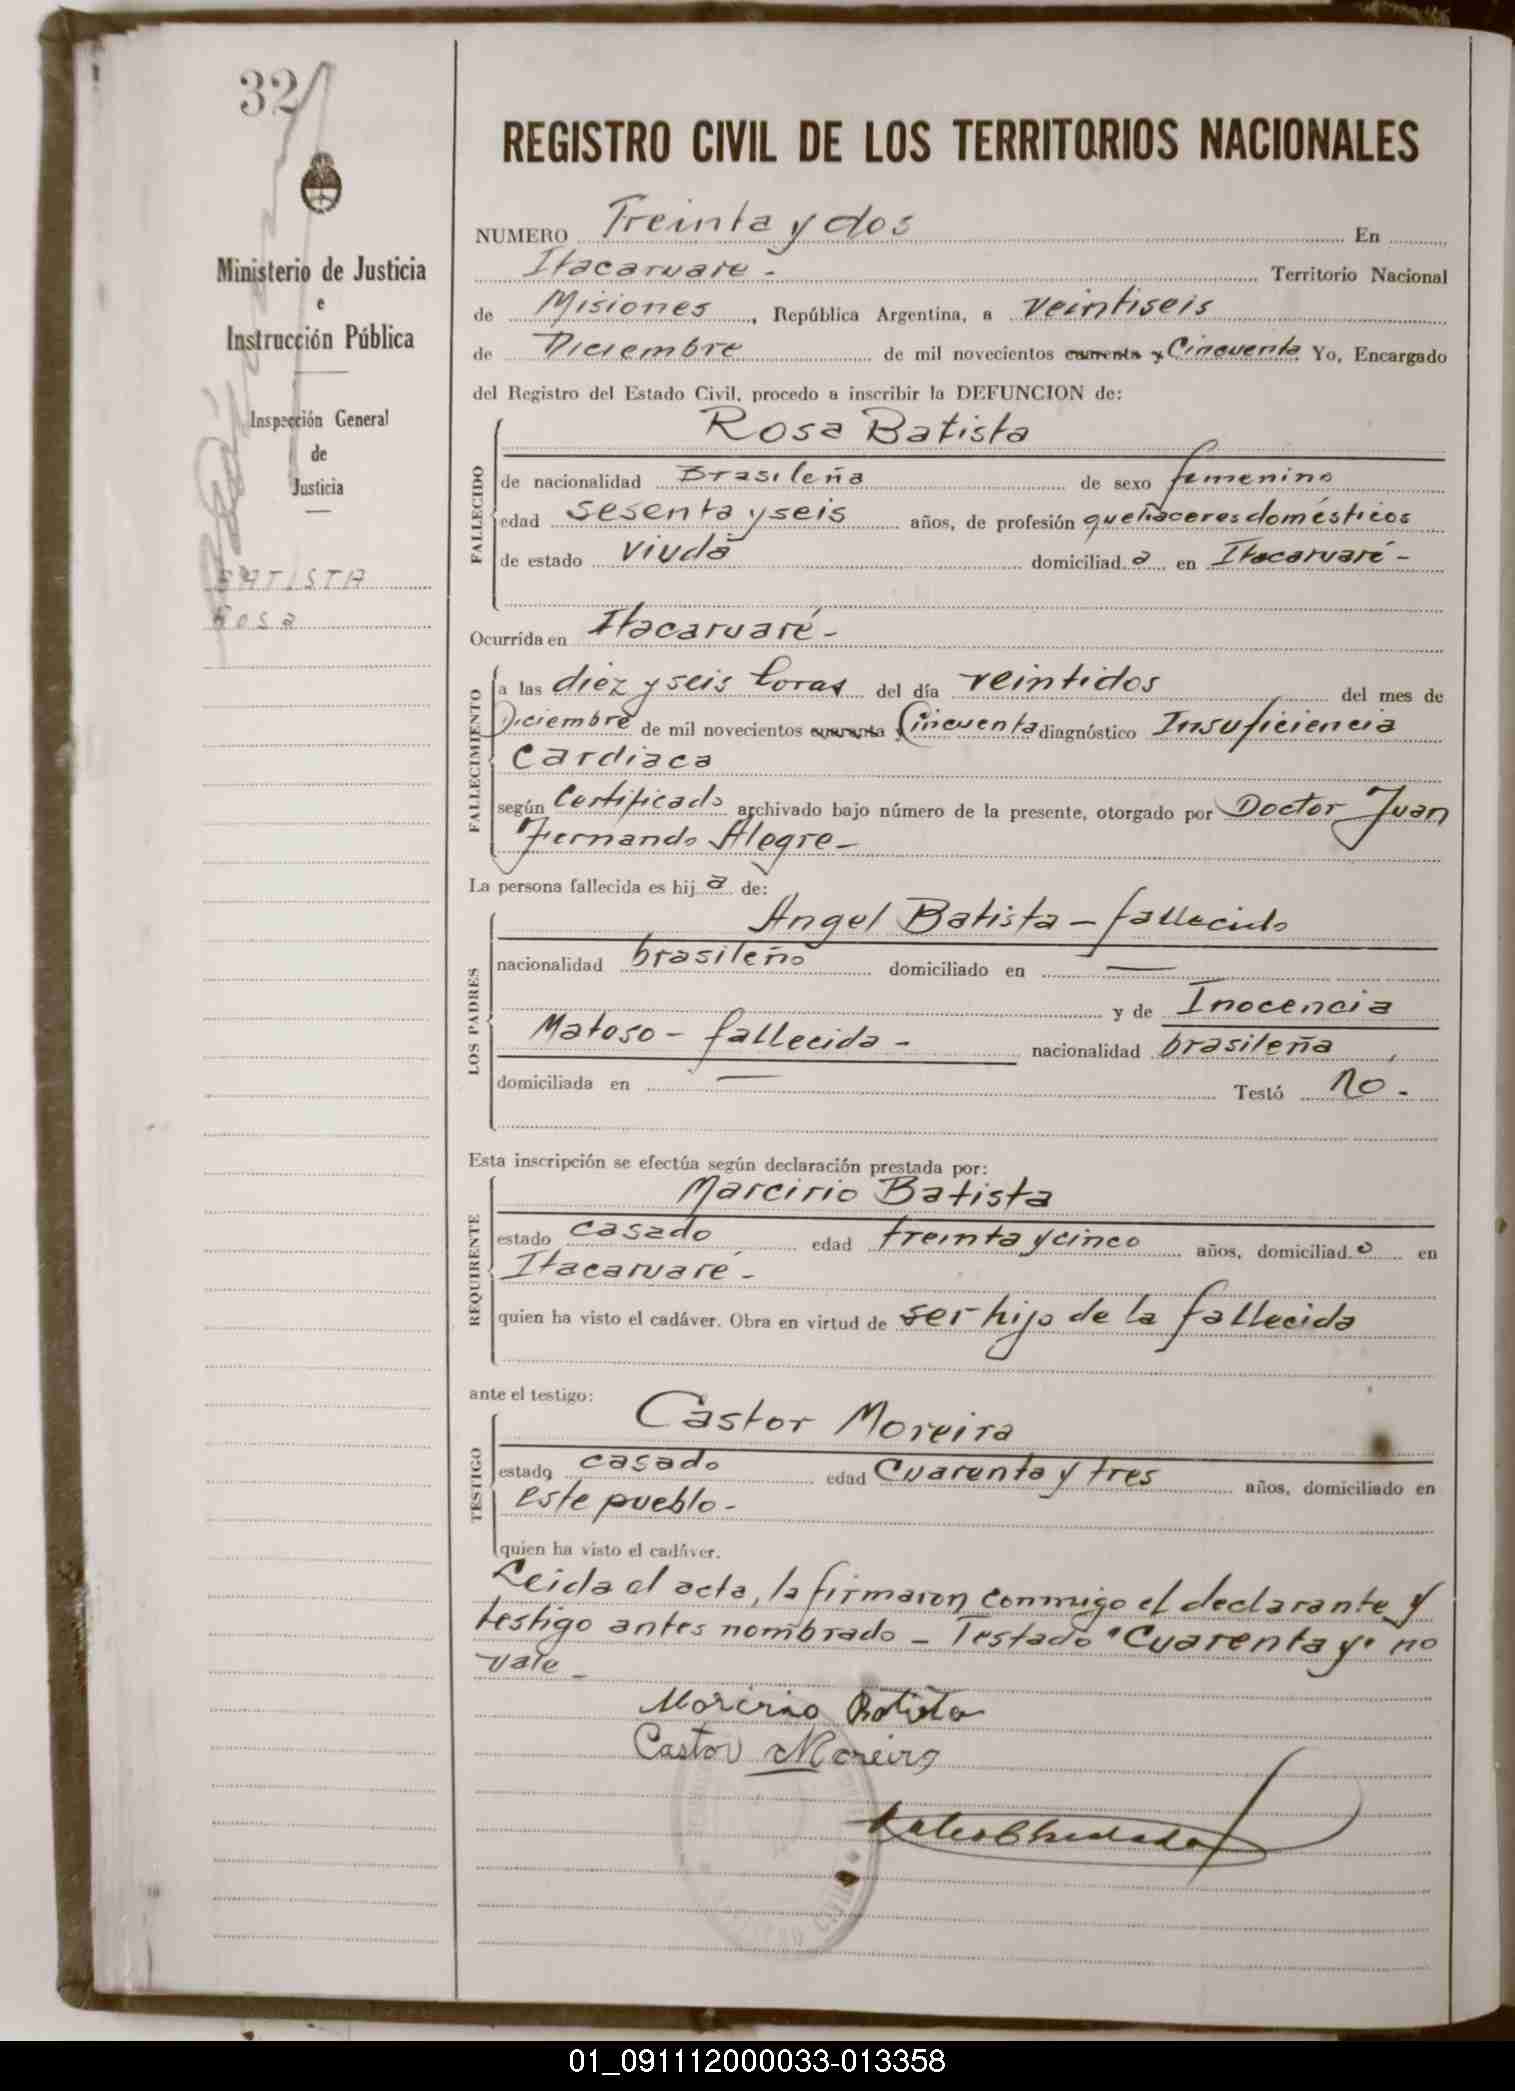 32
Ministerio de Justicia
e
Instrucción Pública
Inspección General
de
Justicia
BATISTA
Rosa
REGISTRO CIVIL DE LOS TERRITORIOS NACIONALES
NUMERO Treinta y dos En
Itacaruare - Territorio Nacional
de Misiones, República Argentina, a veintiseis
de Diciembre de mil novecientos cuarenta y Cincuenta Yo, Encargado
del Registro del Estado Civil, procedo a inscribir la DEFUNCION de:
Rosa Batista
FALLECIDO
de nacionalidad Brasileña de sexo femenino
edad sesenta y seis años, de profesión quehaceres domésticos
de estado viuda domiciliad a en Itacaruaré -
Ocurrida en Itacaruaré -
FALLECIMIENTO
a las diez y seis horas del día veintidos del mes de
Diciembre de mil novecientos cuarenta y Cincuenta diagnóstico Insuficiencia
Cardiaca
según Certificado archivado bajo número de la presente, otorgado por Doctor Juan
Fernando Alegre -
La persona fallecida es hij a de:
LOS PADRES
Angel Batista - fallecido
nacionalidad brasileño domiciliado en —
y de Inocencia
Matoso - fallecida - nacionalidad brasileña,
domiciliada en — Testó no -
Esta inscripción se efectúa según declaración prestada por:
REQUIRENTE
Marcirio Batista
estado casado edad treinta y cinco años, domiciliad o en
Itacaruaré -
quien ha visto el cadáver. Obra en virtud de ser hijo de la fallecida
ante el testigo:
TESTIGO
Castor Moreira
estado casado edad Cuarenta y tres años, domiciliado en
este pueblo -
quien ha visto el cadáver.
Leida el acta, la firmaron conmigo el declarante y
testigo antes nombrado - Testado "Cuarenta y" no
vale -
Morcirio Batista
Castor Moreira
01_091112000033-013358